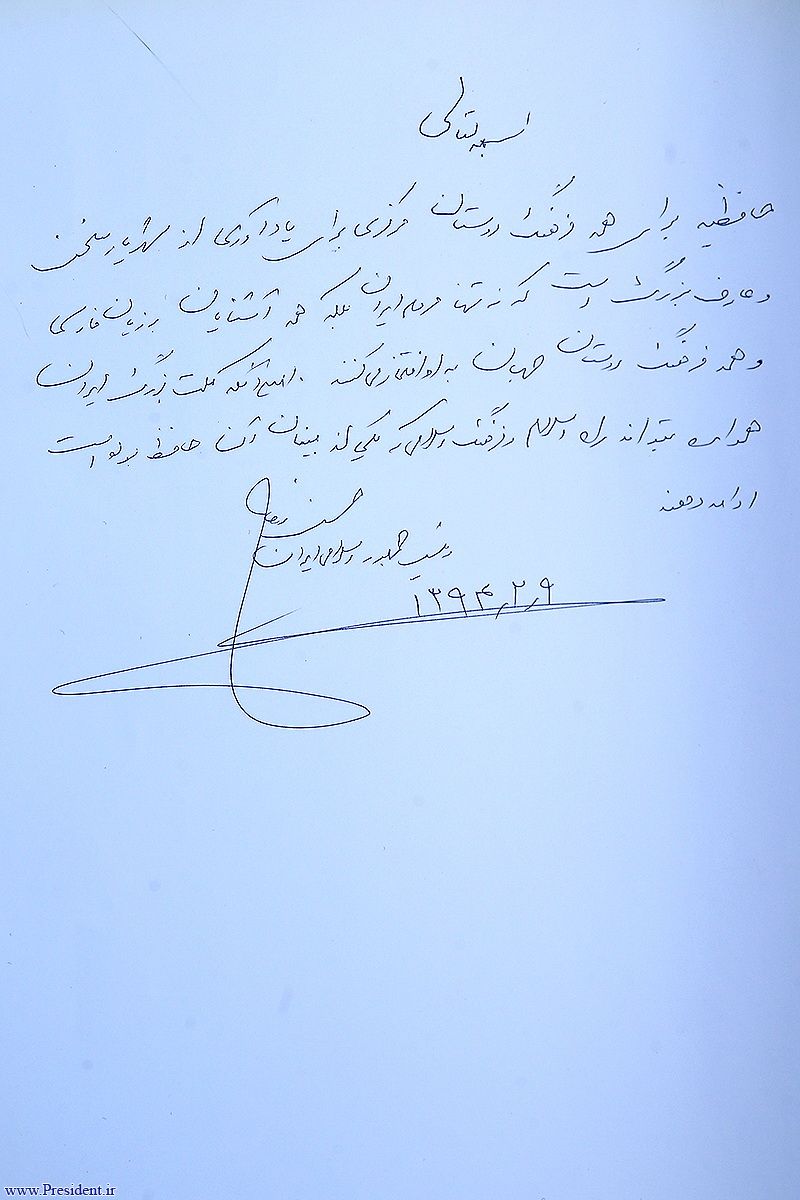 بسمه تعالی
حافظیه برای همه فرهنگ دوستان مرکزی برای یادآوری از شهریار سخن
و عارف بزرگ است که نه تنها مردم ایران بلکه همه آشنایان بزبان فارسی
و همه فرهنگ دوستان جهان به او افتخار می‌کنند. امید آنکه ملت بزرگ ایران
همواره بتواند راه اسلام و فرهنگ اسلامی که یکی از مبینان آن حافظ بوده است
ادامه دهند
حسن روحانی
رئیس جمهوری اسلامی ایران
۱۳۹۴٫۲٫۹
www.President.ir